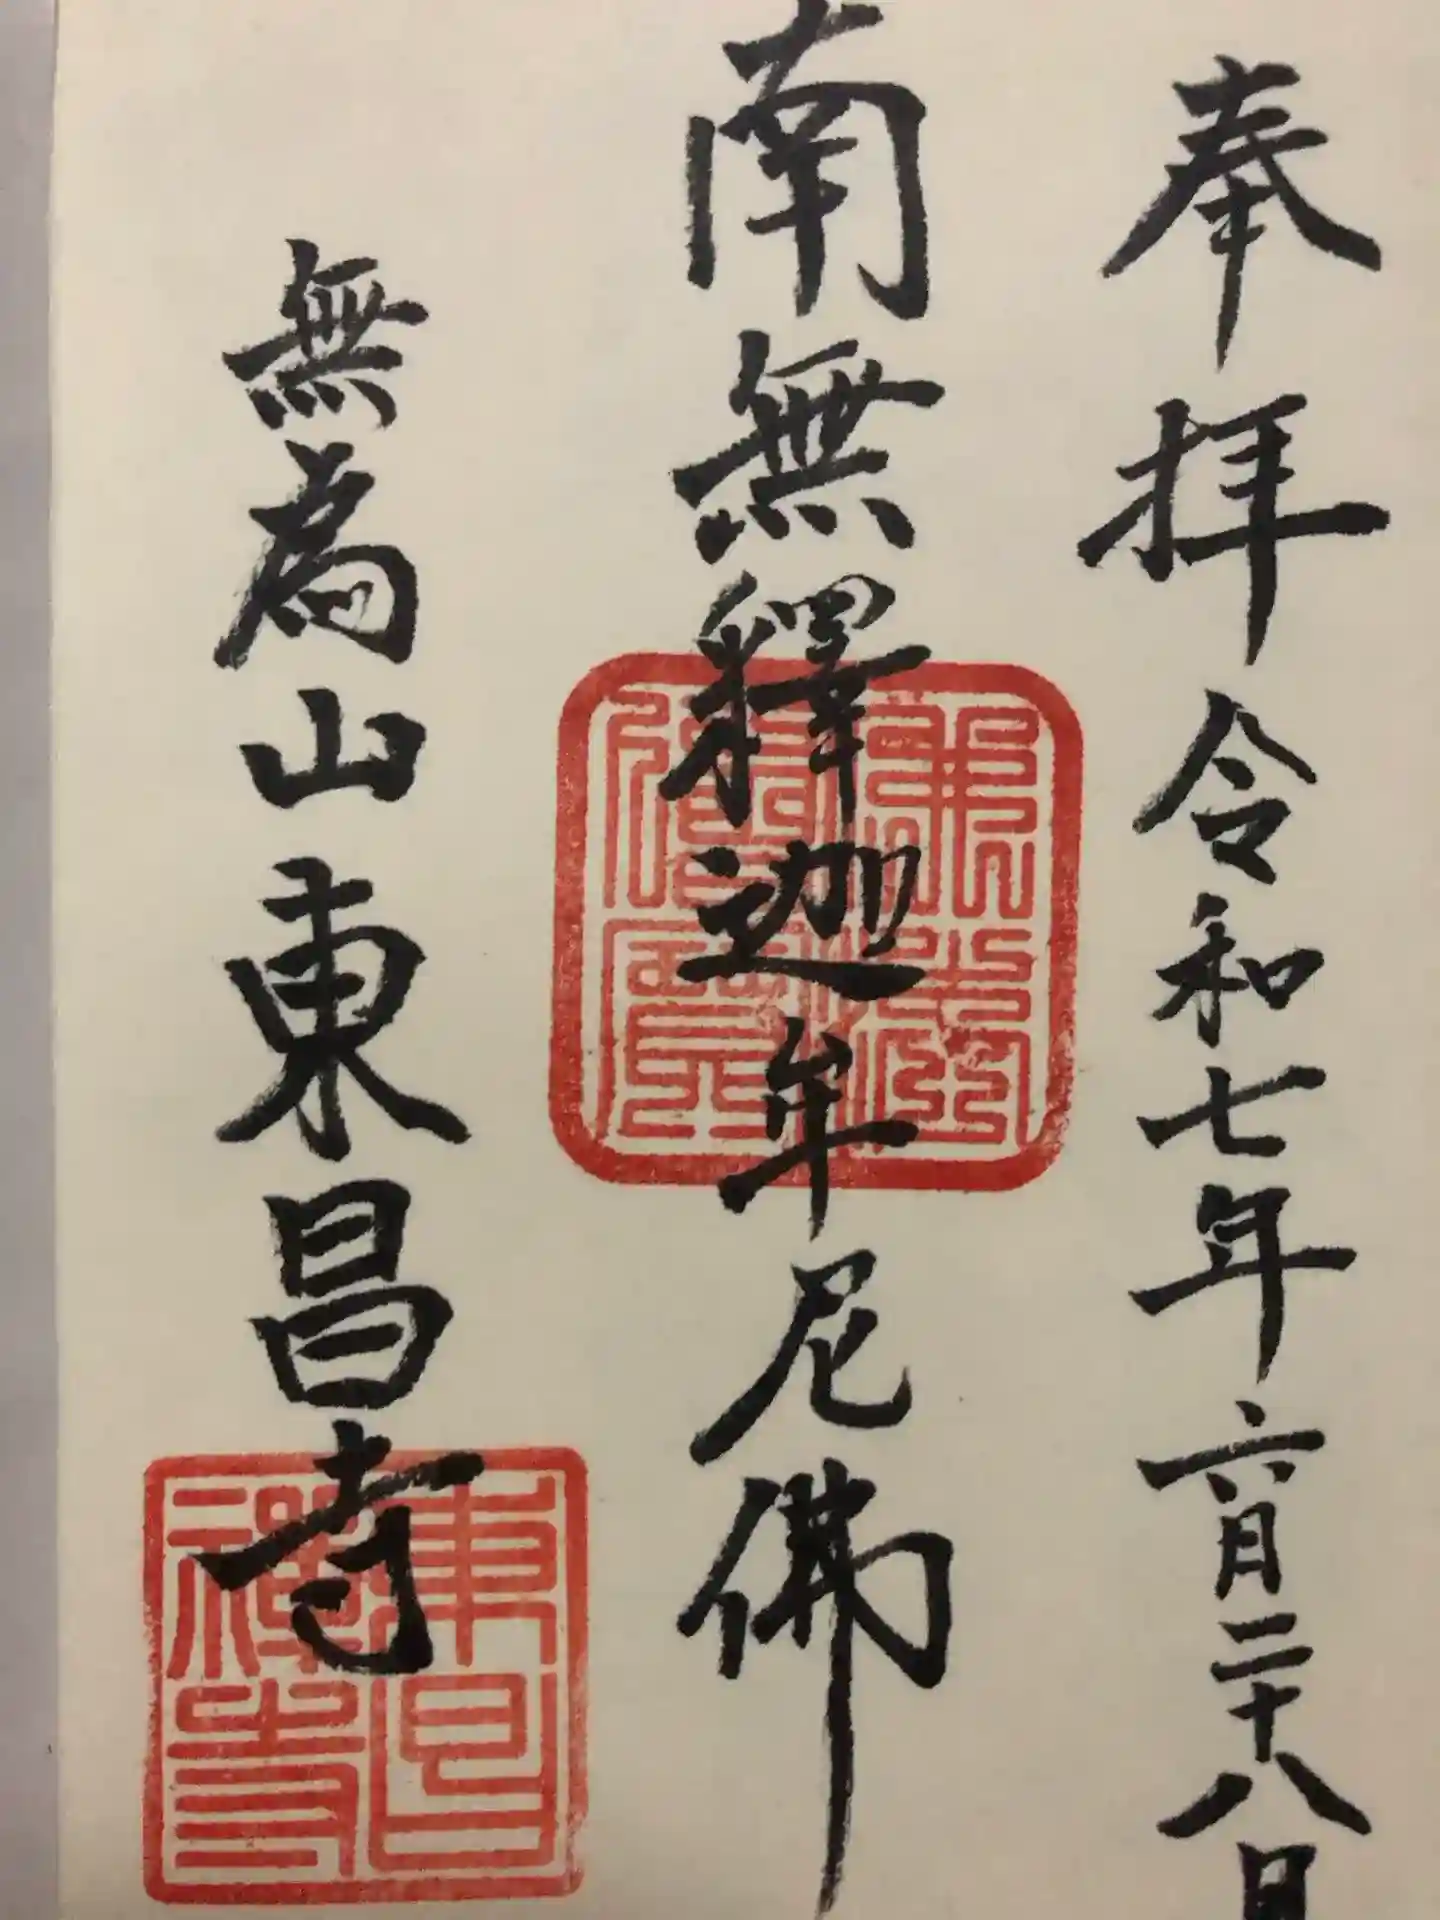 奉拝令和七年六月二十八日
南無釋迦牟尼佛
無為山東昌寺
佛法僧寶
東昌禅寺